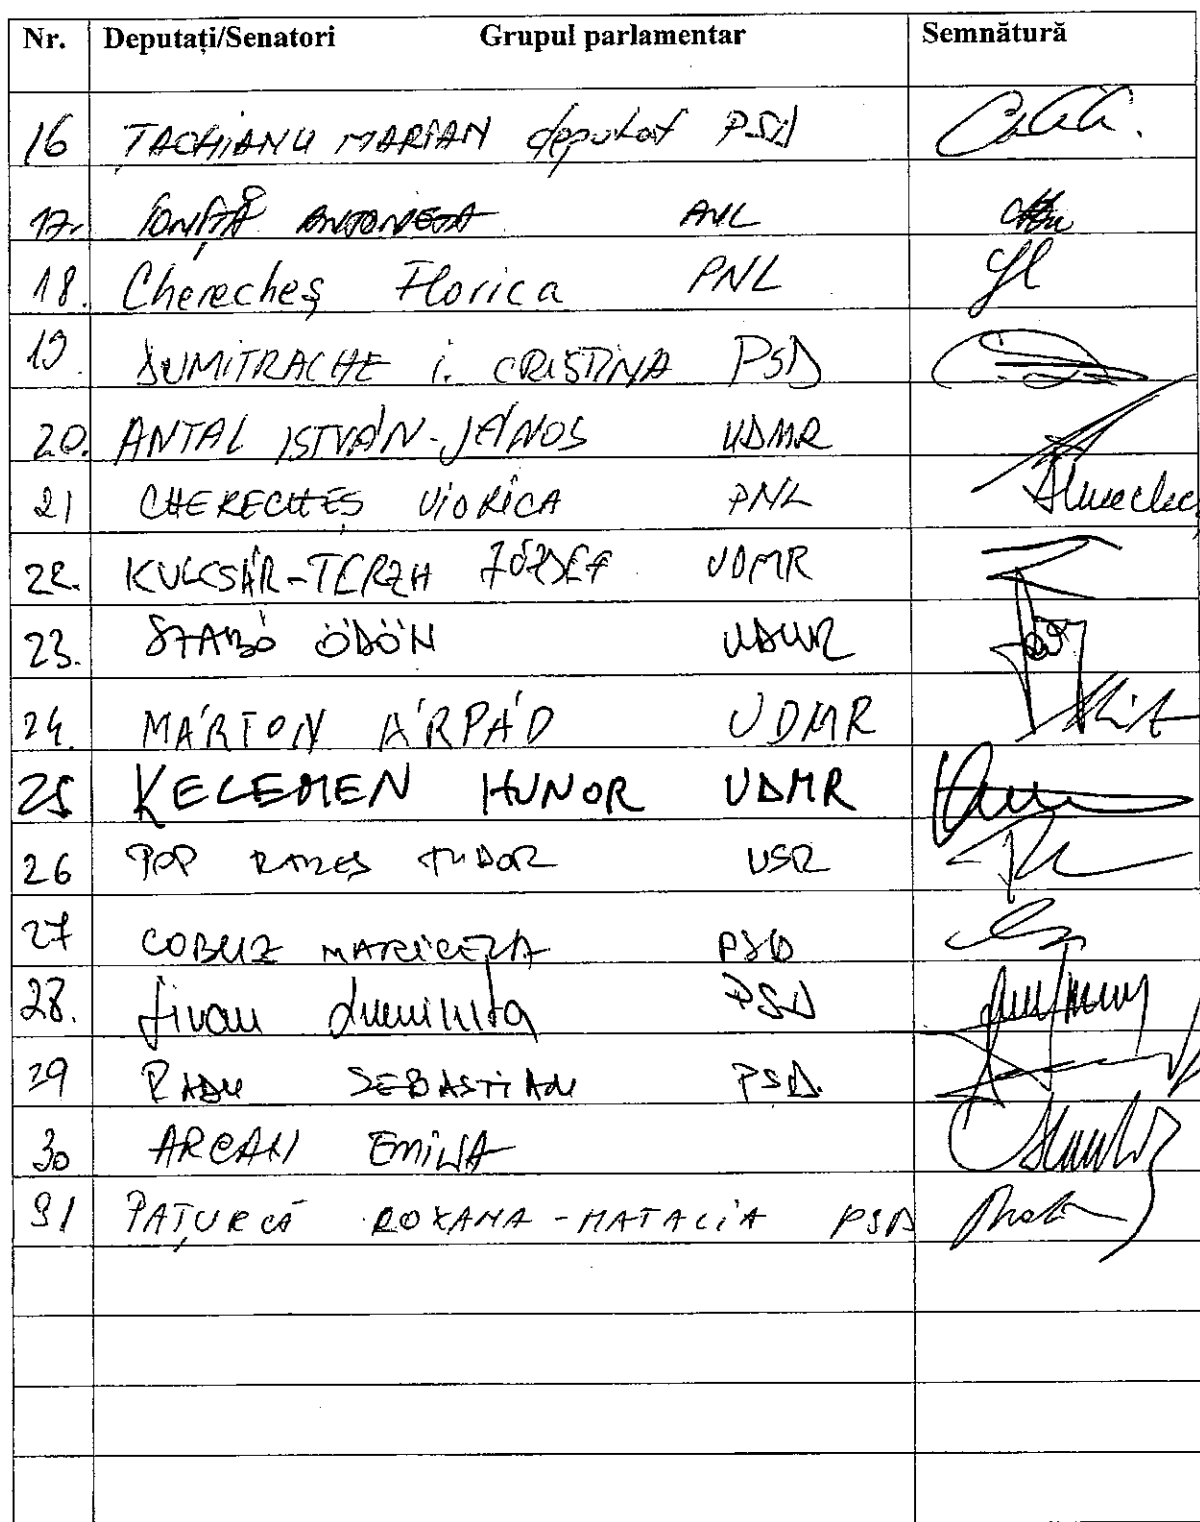 Nr. Deputați/Senatori Grupul parlamentar Semnătură
16 ȚACHIANU MARIAN deputat PSD
17. IONIȚĂ ANTONETA PNL
18. Cherecheș Florica PNL
19. DUMITRACHE I. CRISTINA PSD
20. ANTAL ISTVÁN-JÁNOS UDMR
21 CHERECHEȘ VIORICA PNL
22. KULCSÁR-TERZA JÓZSEF UDMR
23. SZABÓ ÖDÖN UDMR
24. MÁRTON ÁRPÁD UDMR
25 KELEMEN HUNOR UDMR
26 POP RAREȘ TUDOR USR
27 COBUZ MARICELA PSD
28. Jivan Luminița PSD
29 RADU SEBASTIAN PSD.
30 ARCAN EMILIA
31 PAȚURCĂ ROXANA-NATALIA PSD